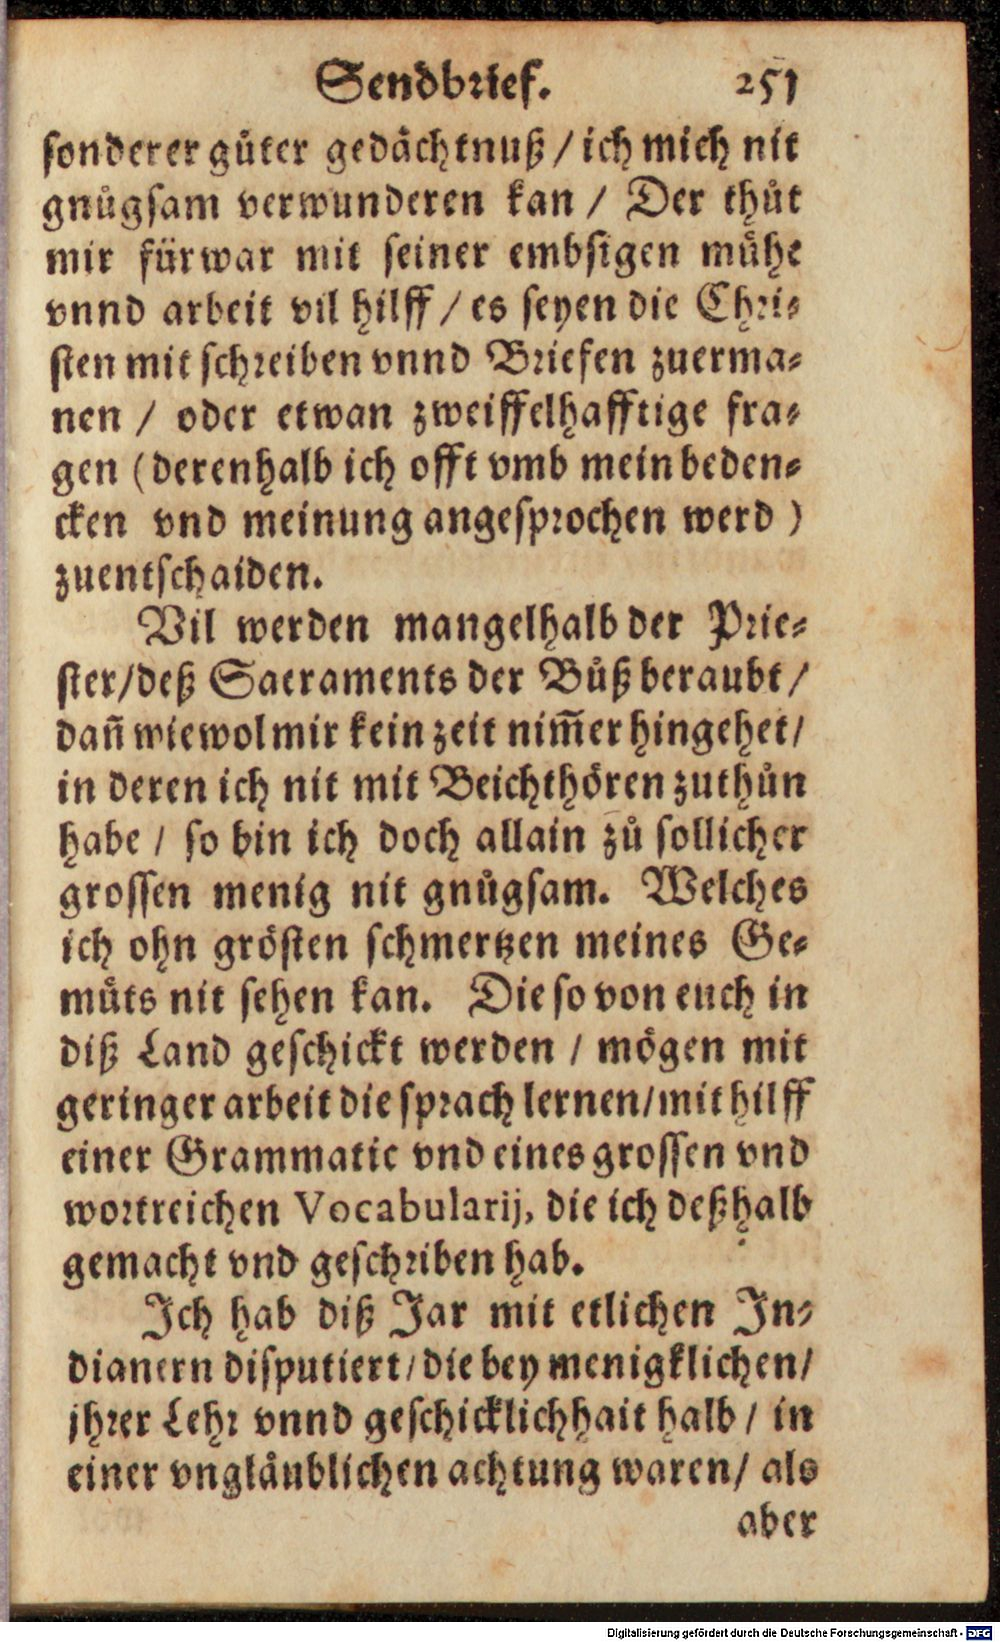 Sendbrief. 251
sonderer gůter gedächtnuß / ich mich nit
gnůgsam verwunderen kan / Der thůt
mir fürwar mit seiner embsigen mühe
vnnd arbeit vil hilff / es seyen die Chri-
sten mit schreiben vnnd Briefen zuerma-
nen / oder etwan zweiffelhafftige fra-
gen (derenhalb ich offt vmb mein beden-
cken vnd meinung angesprochen werd)
zuentschaiden.
Vil werden mangelhalb der Prie-
ster/deß Sacraments der Bůß beraubt /
dañ wiewol mir kein zeit nim̃er hingehet/
in deren ich nit mit Beichthören zuthůn
habe / so bin ich doch allain zů sollicher
grossen menig nit gnůgsam. Welches
ich ohn grösten schmertzen meines Ge-
můts nit sehen kan. Die so von euch in
diß Land geschickt werden / mögen mit
geringer arbeit die sprach lernen/mit hilff
einer Grammatic vnd eines grossen vnd
wortreichen Vocabularij, die ich deßhalb
gemacht vnd geschriben hab.
Ich hab diß Jar mit etlichen In-
dianern disputiert/die bey menigklichen/
jhrer Lehr vnnd geschicklichhait halb / in
einer vngläublichen achtung waren/ als
aber
Digitalisierung gefördert durch die Deutsche Forschungsgemeinschaft - DFG